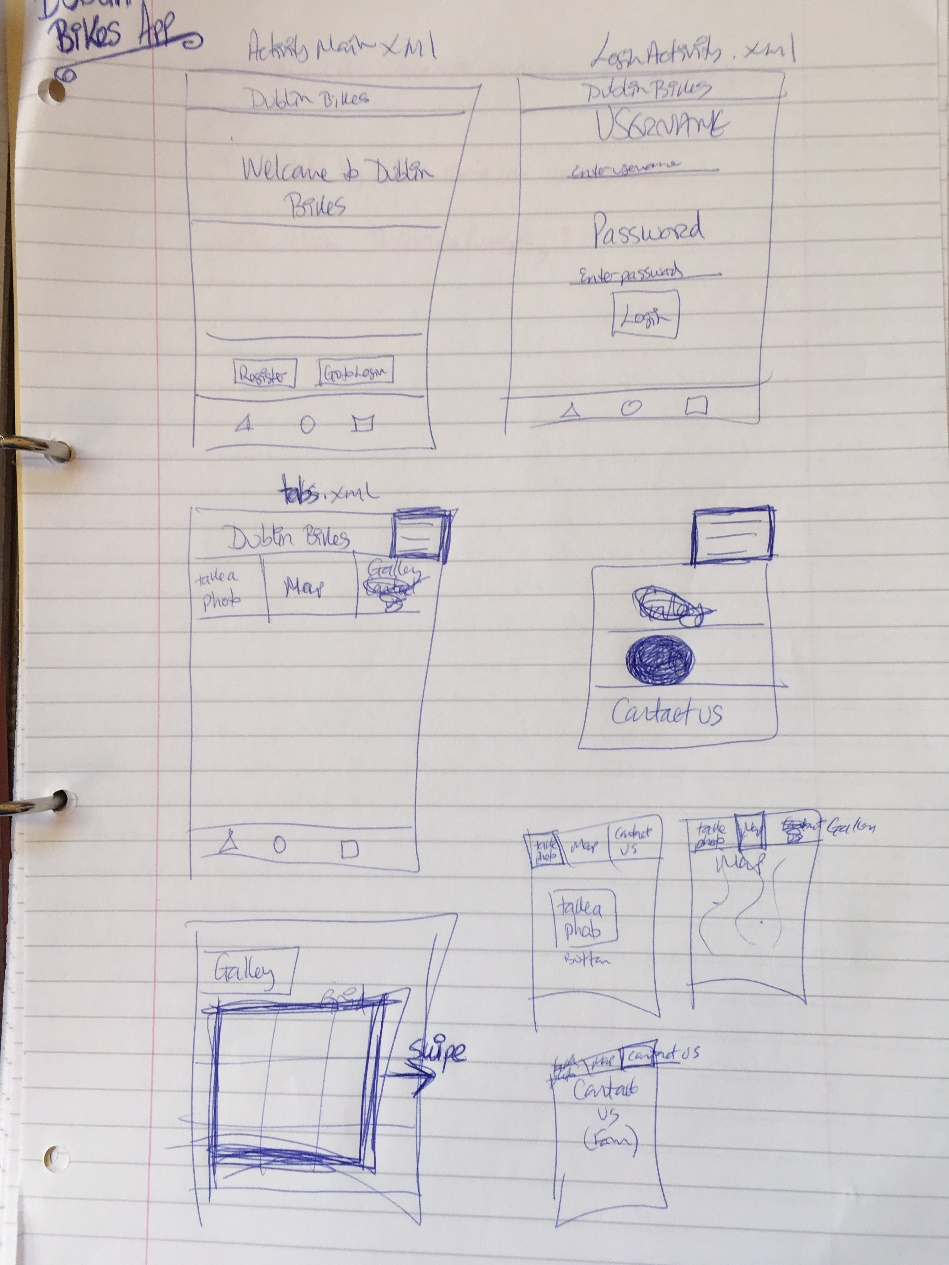 Dublin
Bikes App
Activity Main XML
Dublin Bikes
Welcome to Dublin
Bikes
Register
Go to Login
Login Activity.xml
Dublin Bikes
USERNAME
Enter username
Password
Enter password
Login
tabs.xml
Dublin Bikes
take a
photo
Map
Gallery
Contact us
take
photo
Map
Contact
US
take a
photo
Button
take
photo
Map
Gallery
Map
Gallery
Grid
Swipe
take
photo
Map
Contact US
Contact
US
(Form)